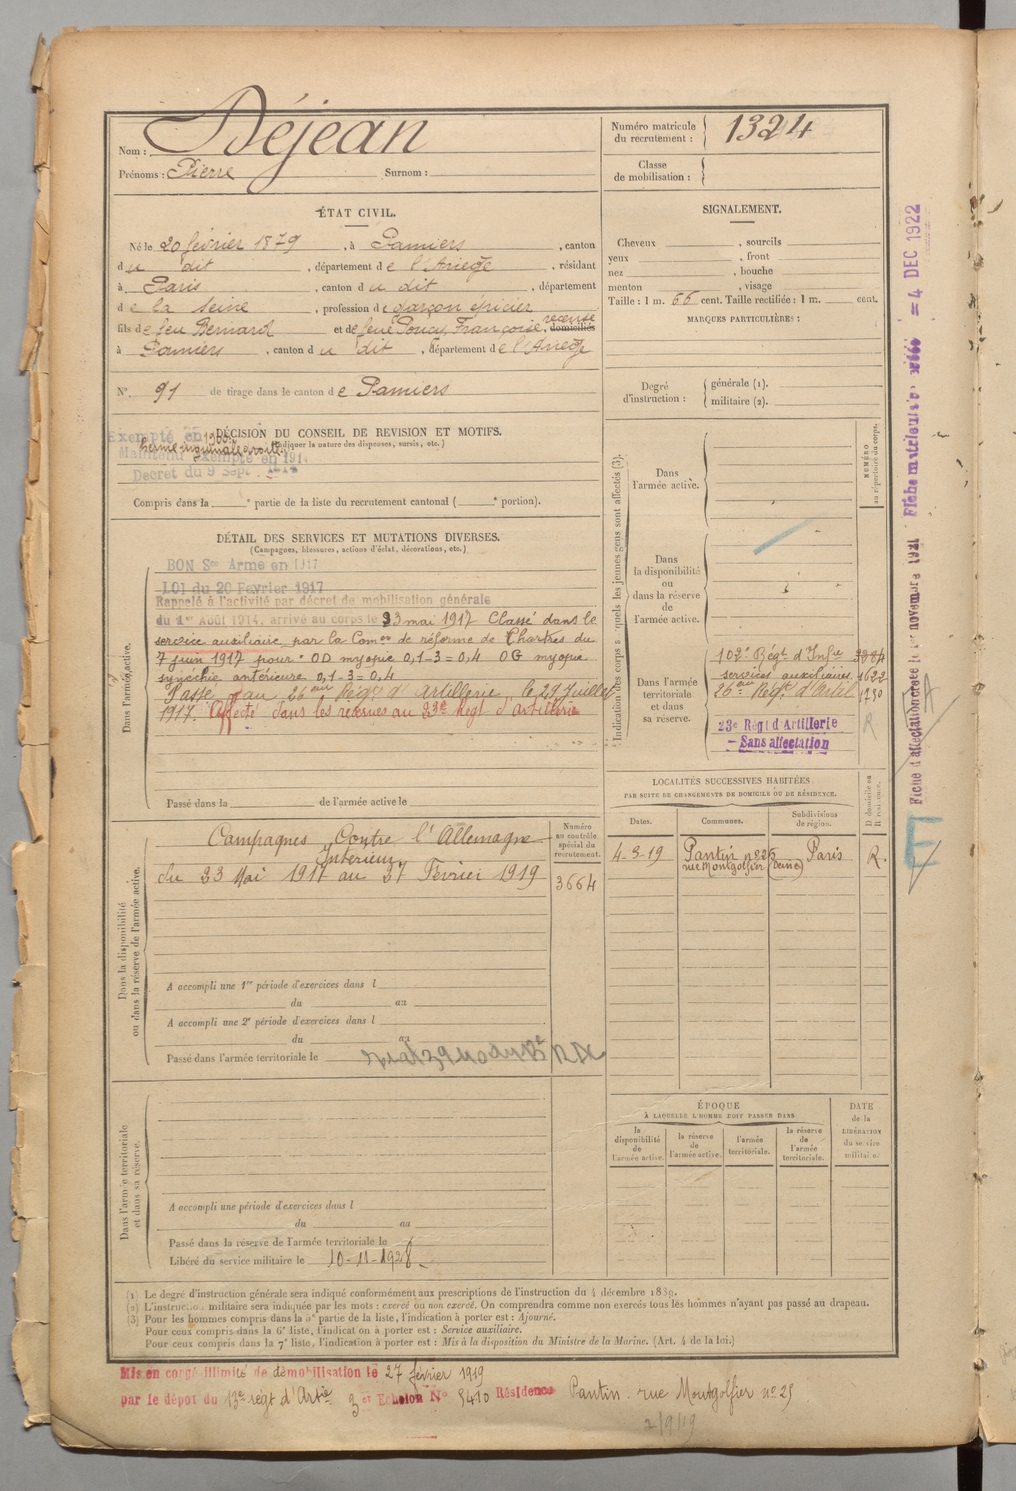 Nom : Déjean
Prénoms : Pierre Surnom :
Numéro matricule du recrutement : 1324
Classe de mobilisation :
ÉTAT CIVIL.
Né le 20 février 1879, à Pamiers, canton
du dit, département de l'Ariège, résidant
à Paris, canton du dit, département
de la Seine, profession de garçon épicier
fils de feu Bernard et de feue Françoise, recensé domiciliés
à Pamiers, canton du dit, département de l'Ariège
N° 91 de tirage dans le canton de Pamiers
SIGNALEMENT.
Cheveux , sourcils
yeux , front
nez , bouche
menton , visage
Taille : 1 m. 66 cent. Taille rectifiée : 1 m. cent.
MARQUES PARTICULIÈRES :
Degré d'instruction : générale (1).
militaire (2).
DÉCISION DU CONSEIL DE REVISION ET MOTIFS.
(Indiquer la nature des dispenses, sursis, etc.)
Exempté en
hernie inguinale droite
Décret du 9 Sept. 1914
Compris dans la e partie de la liste du recrutement cantonal ( e portion).
DÉTAIL DES SERVICES ET MUTATIONS DIVERSES.
(Campagnes, blessures, actions d'éclat, décorations, etc.)
Dans l'armée active.
BON Sce Armé en 1917
LOI du 20 Février 1917
Rappelé à l'activité par décret de mobilisation générale
du 1er Août 1914, arrivé au corps le 23 mai 1917 Classé dans le
service auxiliaire par la Comon de réforme de Chartres du
7 juin 1917 pour : OD myopie 0,1-3=0,4 OG myopie
synéchie antérieure 0,1-3=0,4
Passé au 26eme Régt d'Artillerie le 29 Juillet
1917. Affecté dans les réserves au 23e Régt d'artillerie
Passé dans la de l'armée active le
Indication des corps auxquels les jeunes gens sont affectés (3).
NUMÉRO au répertoire du corps.
Dans l'armée active.
Dans la disponibilité ou dans la réserve de l'armée active.
Dans l'armée territoriale et dans sa réserve.
102e Régt d'Infie
services auxiliaires 1622
26eme Régt d'Artel 1730
23e Régt d'Artillerie
— Sans affectation
R
Dans la disponibilité ou dans la réserve de l'armée active.
Campagnes Contre l'Allemagne
Intérieur
du 23 Mai 1917 au 27 Février 1919
Numéro au contrôle spécial du recrutement.
3664
A accompli une 1re période d'exercices dans l
du au
A accompli une 2e période d'exercices dans l
du au
Passé dans l'armée territoriale le
LOCALITÉS SUCCESSIVES HABITÉES
PAR SUITE DE CHANGEMENTS DE DOMICILE OU DE RÉSIDENCE.
Dates. Communes. Subdivisions de région. D domicile ou R résidence.
4-3-19 Pantin n° 25 Paris R.
rue Montgolfier (Seine)
Dans l'armée territoriale et dans sa réserve.
A accompli une période d'exercices dans l
du au
Passé dans la réserve de l'armée territoriale le
Libéré du service militaire le 10-11-1928
ÉPOQUE
À LAQUELLE L'HOMME DOIT PASSER DANS
DATE de la LIBÉRATION du service militaire.
la disponibilité de l'armée active. la réserve de l'armée active. l'armée territoriale. la réserve de l'armée territoriale.
(1) Le degré d'instruction générale sera indiqué conformément aux prescriptions de l'instruction du 4 décembre 1889.
(2) L'instruction militaire sera indiquée par les mots : exercé ou non exercé. On comprendra comme non exercés tous les hommes n'ayant pas passé au drapeau.
(3) Pour les hommes compris dans la 5e partie de la liste, l'indication à porter est : Ajourné.
Pour ceux compris dans la 6e liste, l'indication à porter est : Service auxiliaire.
Pour ceux compris dans la 7e liste, l'indication à porter est : Mis à la disposition du Ministre de la Marine. (Art. 4 de la loi.)
Mis en congé illimité de démobilisation le 27 février 1919
par le dépôt du 13e régt d'Artie 3e Echelon N° 5410 Résidence Pantin : rue Montgolfier n° 25
2/9/19
= 4 DEC 1922